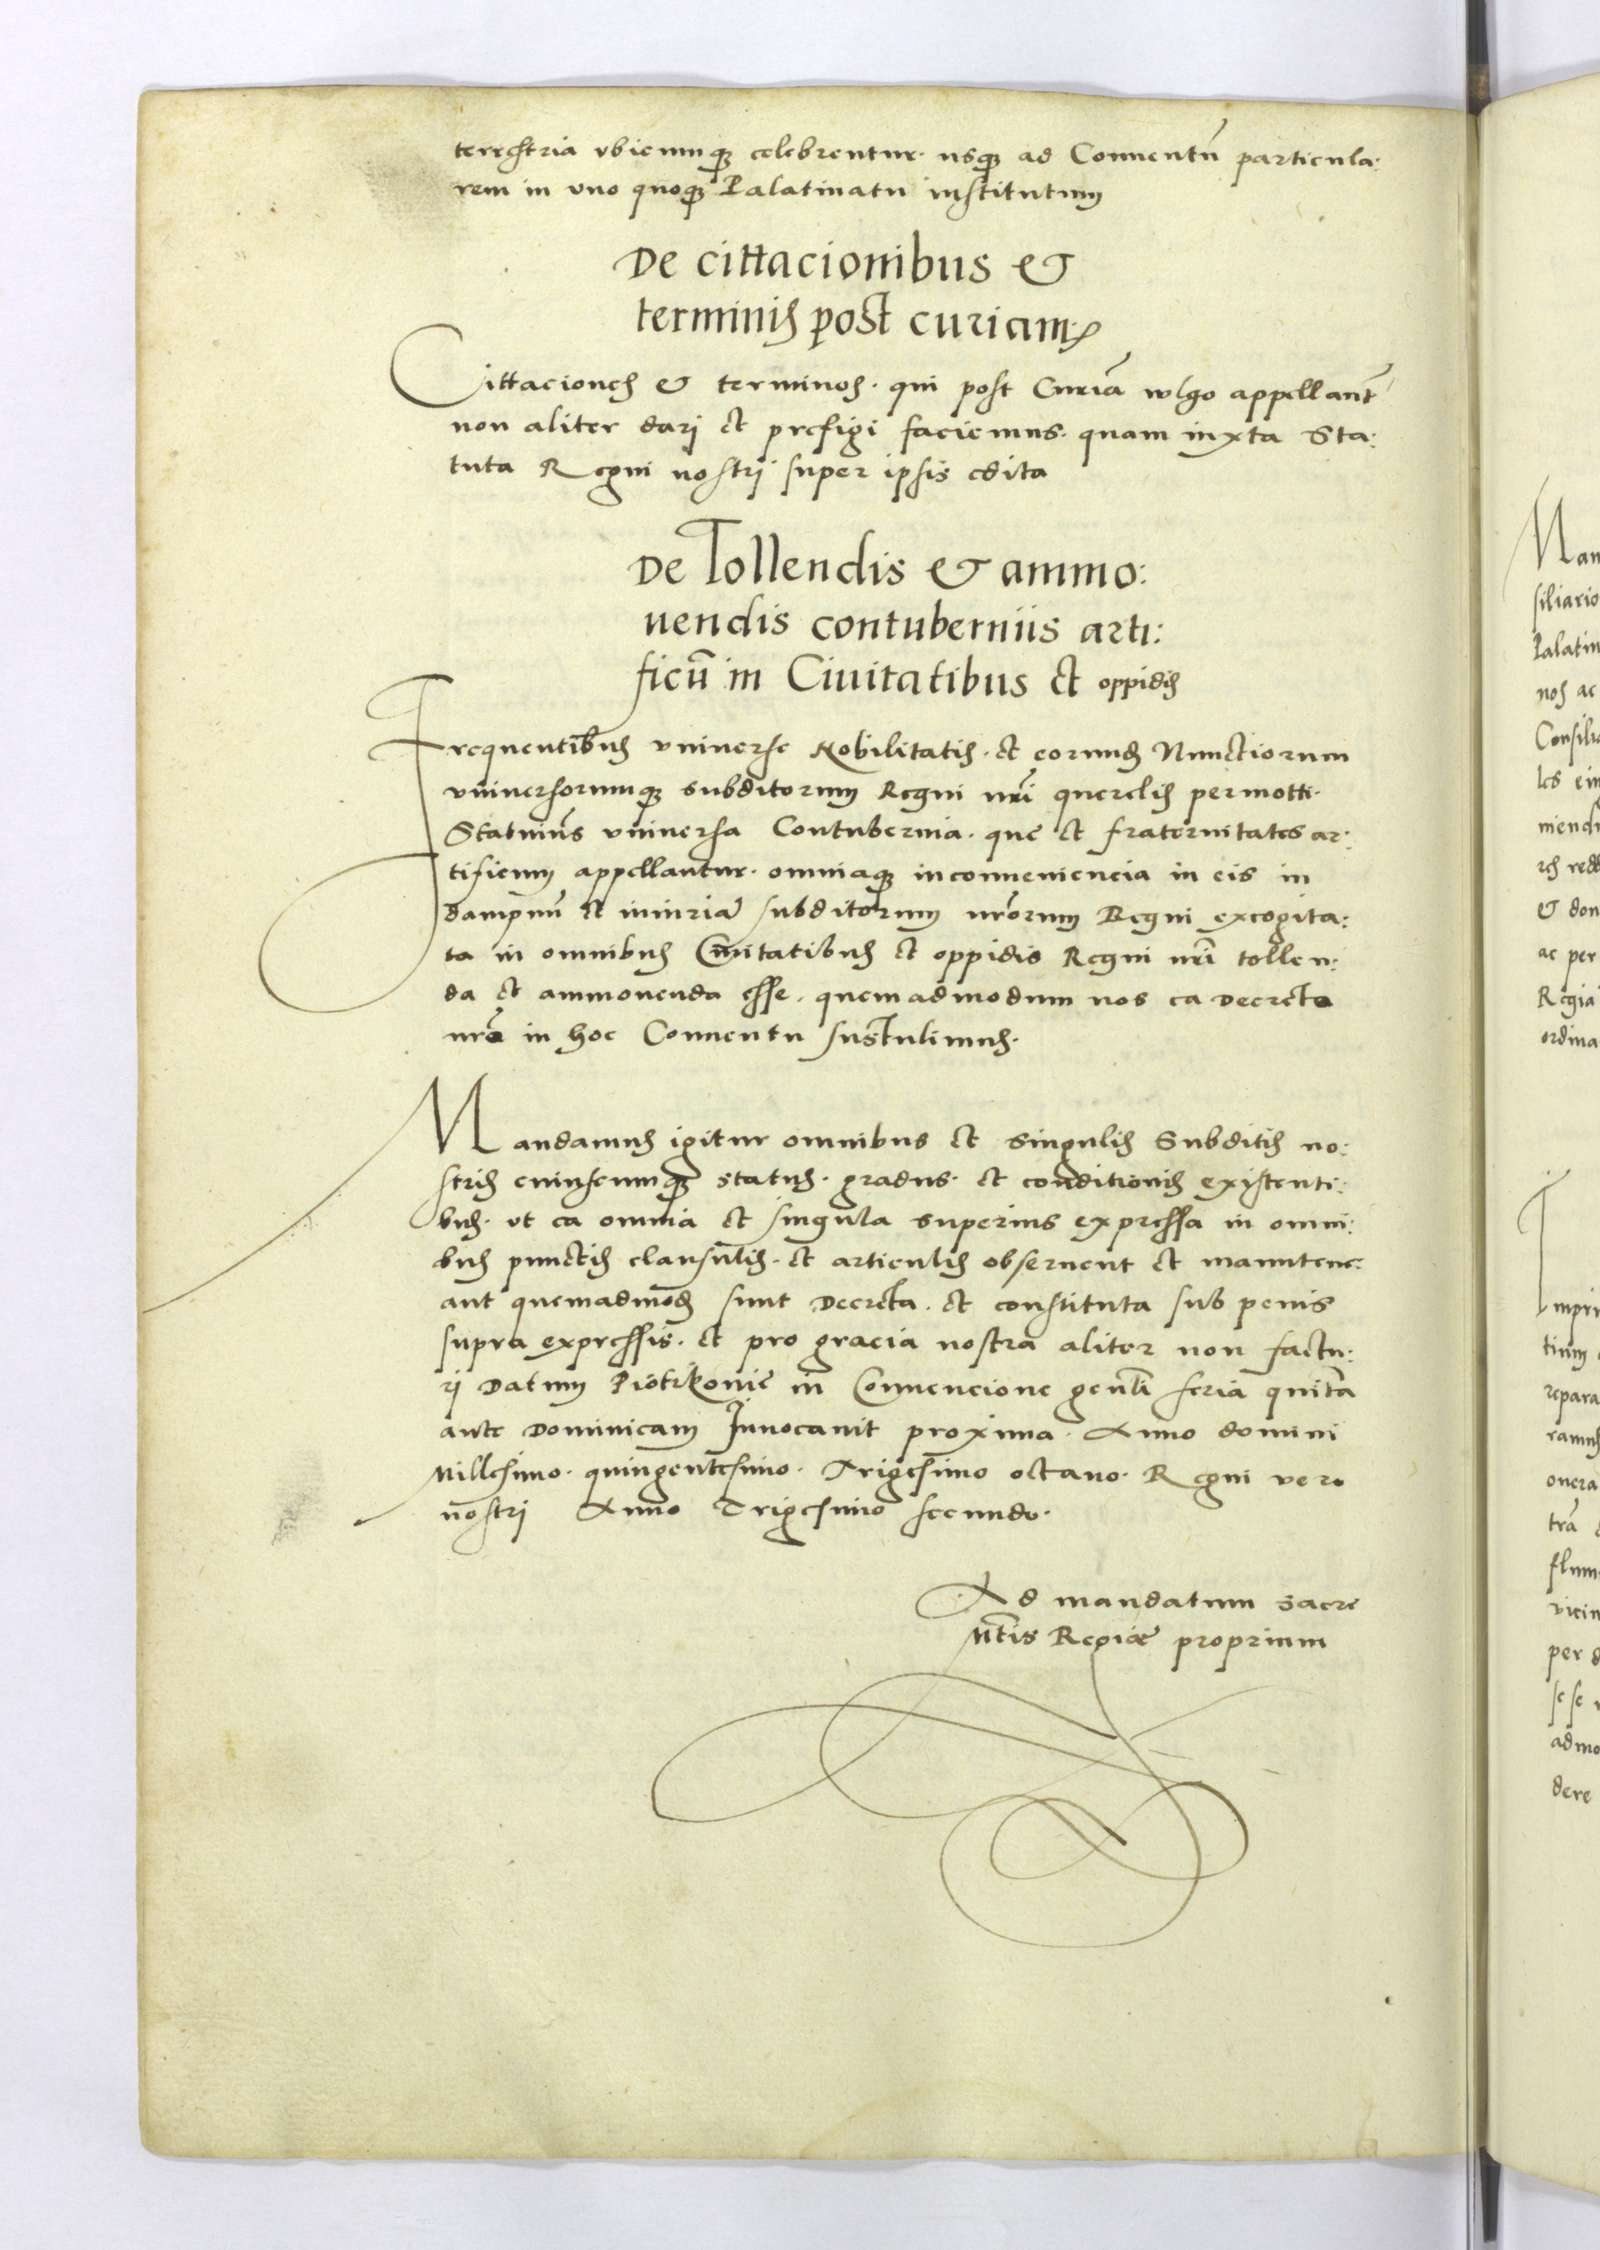 terrestria vbicumq₃ celebrentur. usq₃ ad Conuentũ particula:
rem in vno quoq₃ Palatinatu institutum
De cittacionibus &
terminis post curiam
Cittaciones & terminos. qui post Curiã wlgo appellant̃
non aliter darj et prefigi faciemus. quam iuxta Sta:
tuta Regni nostrj super ipsis edita
De Tollendis & ammo:
uendis contuberniis arti:
ficũ in Ciuitatibus et oppidis
Frequentibus vniuerse Nobilitatis. et eorund̃ Nunctiorum
vniuersorumq₃ subditorum Regni nr̃i querelis permotti.
Statuim̃s vniuersa Contubernia. que et fraternitates ar:
tificum appellantur. omniaq₃ inconueniencia in eis in
dampnũ et iniuriã subditorum nr̃orum Regni excogita:
ta in omnibus Ciuitatibus et oppidis Regni nr̃i tollen:
da et ammouenda esse. quemadmodum nos ea Decreto
nr̃o in hoc Conuentu sustulimus.
Mandamus igitur omnibus et singulis Subditis no:
stris cuiuscumq₃ status. gradus. et conditionis existenti:
bus. vt ea omnia et singula superius expressa in omni:
bus punctis clausulis. et articulis obseruent et manutene:
ant quemadmod̃ sunt Decreta. et constituta sub penis
supra expressis. et pro gracia nostra aliter non factu:
rj Datum Piotrkouie in Conuencione gen̄li feria quinta
ante Dominicam Inuocauit proxima. Anno domini
Millesimo. quingentesimo. Trigesimo octauo. Regni vero
nostri Anno Trigesimo secundo.
Ad mandatum sacre
Mt̃is Regiae proprium